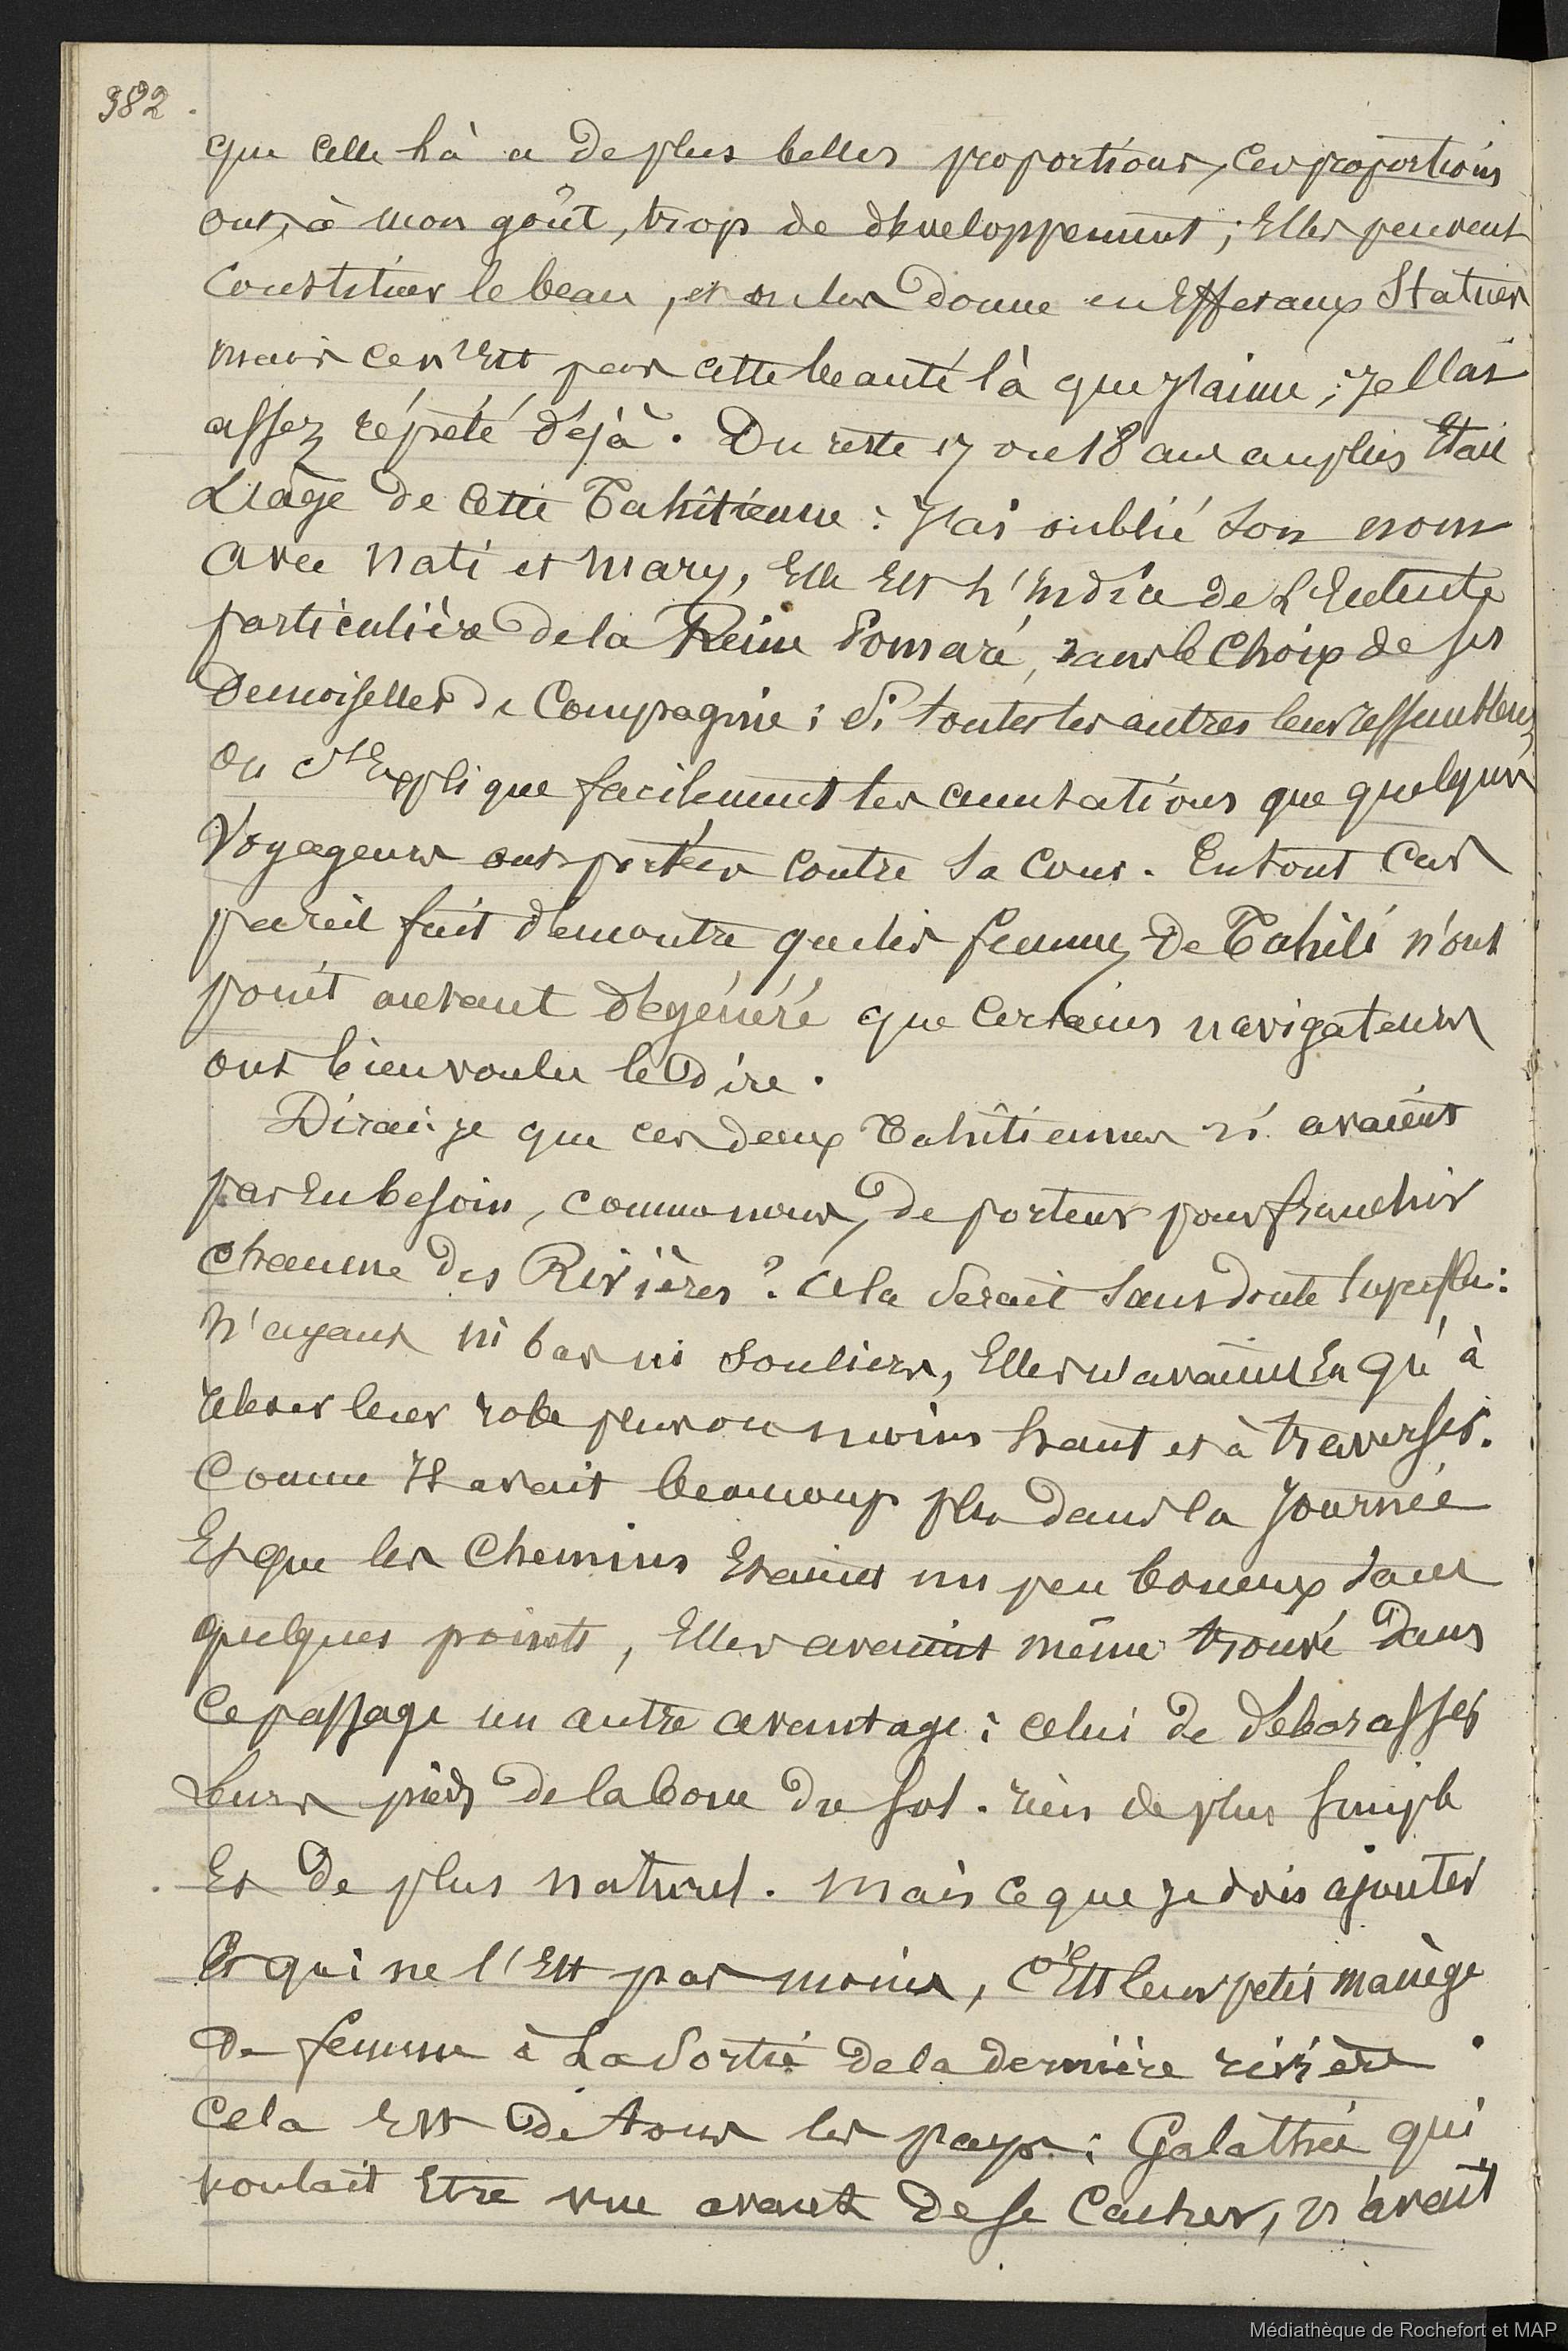 382.
que celle là a de plus belles proportions, ces proportions
ont, à mon goût, trop de développement ; Elles peuvent
Constituer le beau, et on les donne en Effet aux Statues
mais ce n'Est pas cette beauté là que J'aime ; Je l'ai
assez répété déjà. Du reste 17 ou 18 ans au plus Etait
L'age de Cette Tahîtienne : J'ai oublié Son nom
avec Nati et Mary, Elle Est l'indice de L'Entente
particulière de la Reine Pomaré, dans le Choix de ses
Demoiselles de Compagnie ; Si toutes les autres leur ressemblent,
on s'Explique facilement les accusations que quelques
Voyageurs ont portées Contre Sa Cour. En tout Cas
pareil fait démontre que les femmes de Tahiti n'ont
point autant dégénéré que Certains navigateurs
ont bien voulu le Dire.
Dirai-je que ces deux Tahîtiennes n'avaient
pas Eu besoin, comme nous, de porteur pour franchir
Chacune des Rivières ? Cela Serait Sans doute Superflu :
N'ayant ni bas ni Souliers, Elles n'avaient Eu qu'à
relever leur robe plus ou moins haut et à traverser.
Comme Il avait beaucoup plu dans la Journée
Et que les Chemins Etaient un peu boueux dans
quelques points, Elles avaient même trouvé Dans
Ce passage un autre avantage : celui de débarasser
Leurs pieds de la boue du sol. rien de plus Simple
Et de plus naturel. Mais ce que je dois ajouter
Et qui ne l'Est pas moins, C'Est leur petit manège
De femme à La Sortie de la dernière rivière.
Cela Est De tous les pays : Galathée qui
voulait Etre vue avant de se Cacher, n'avait
Médiathèque de Rochefort et MAP